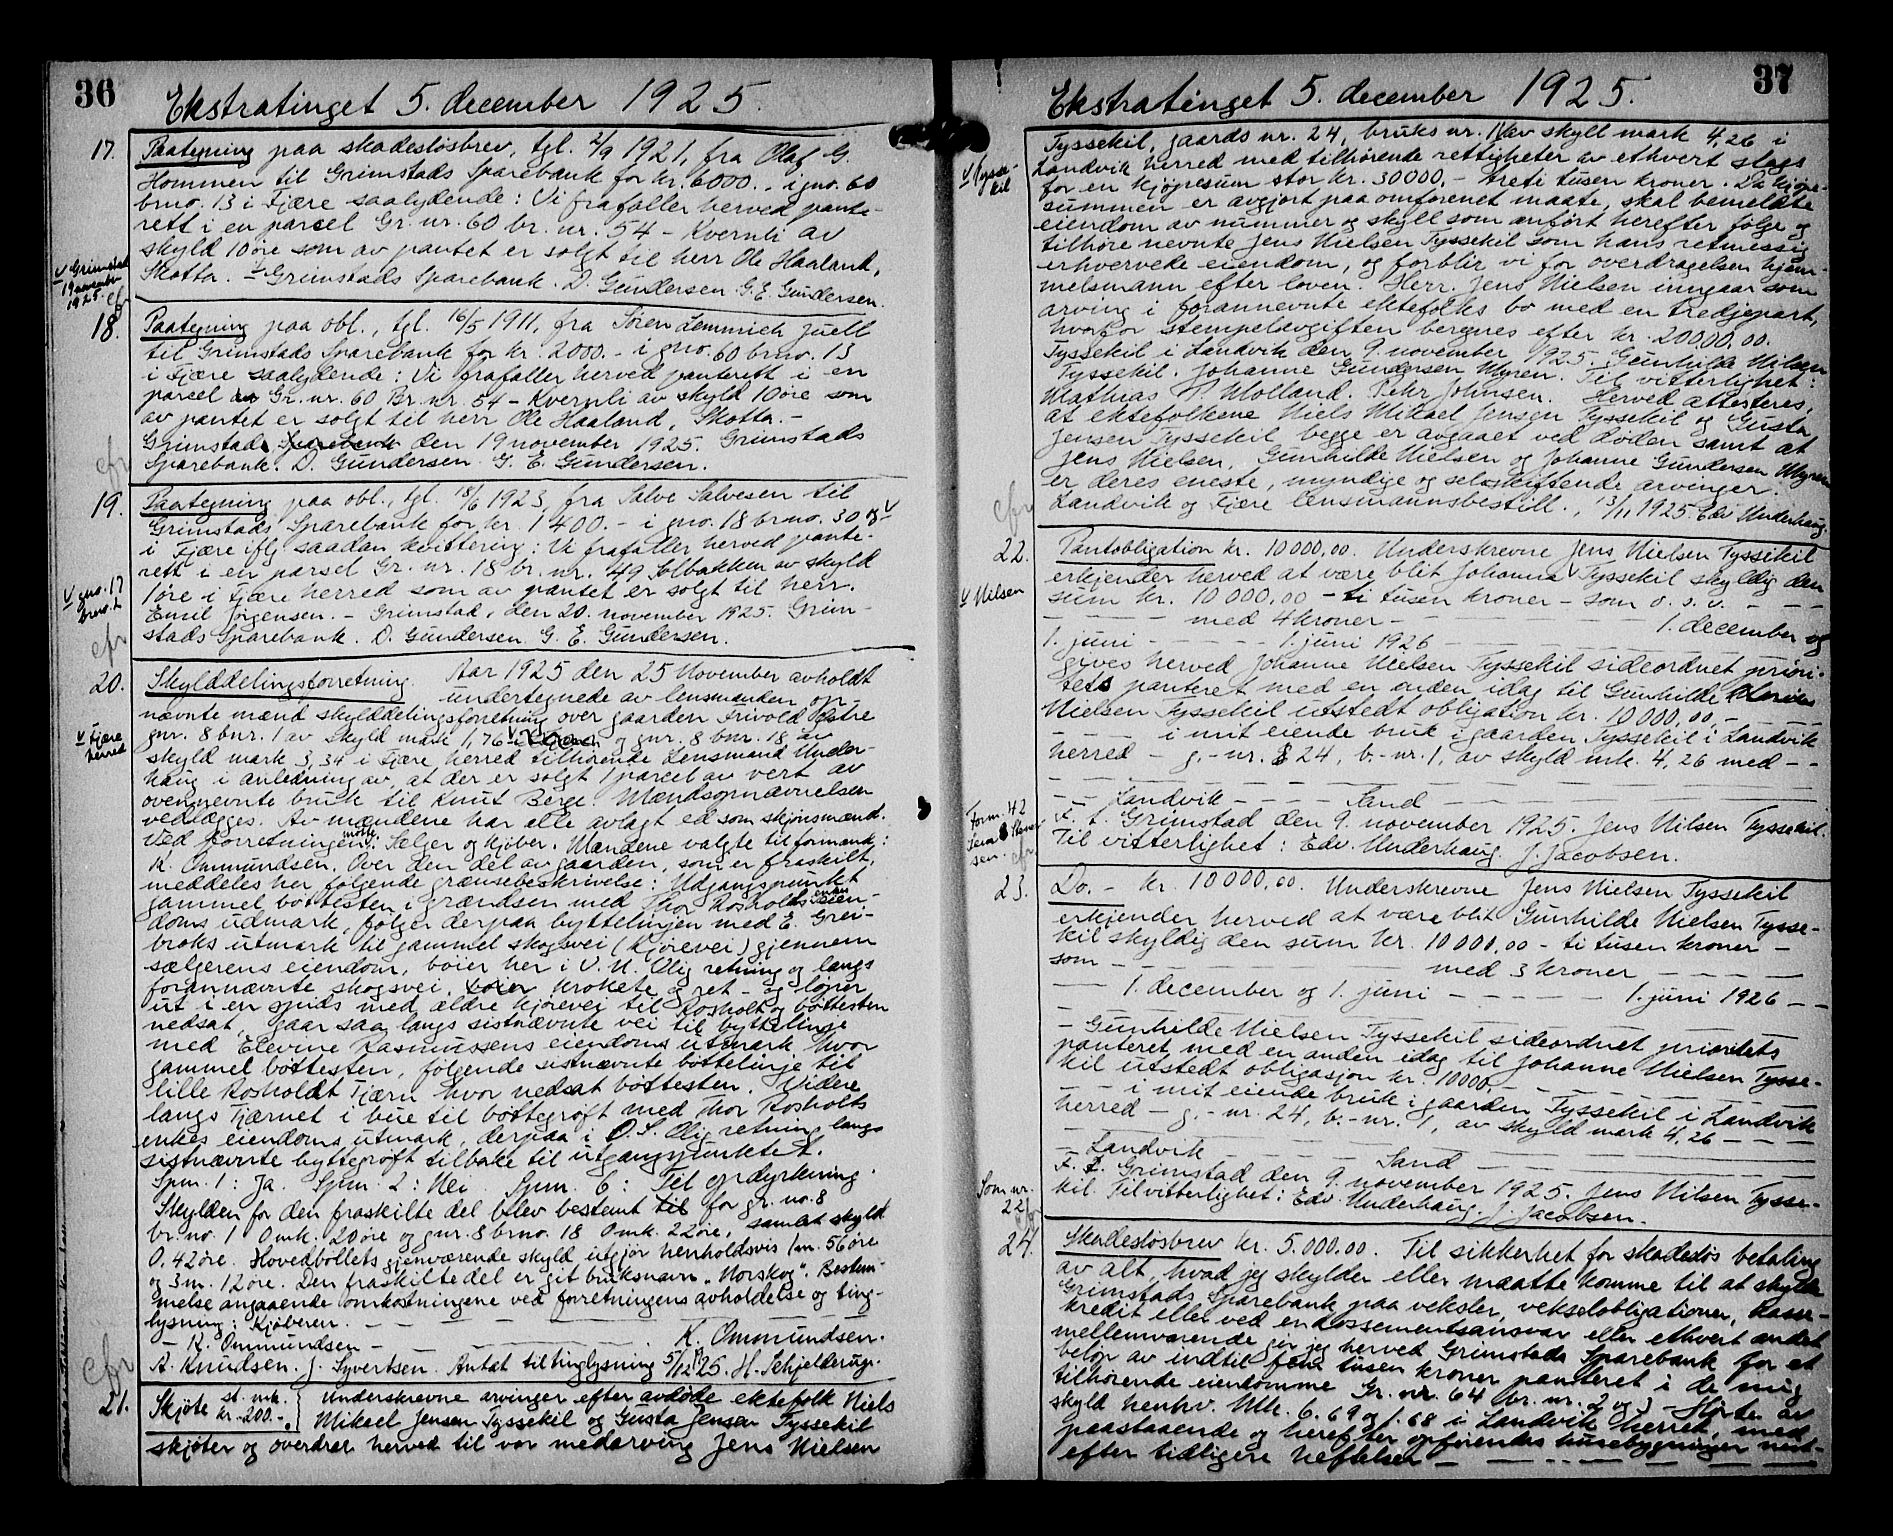 36
Ekstratinget 5. december 1925.
17.
Paategning paa skadesløsbrev, tgl. 2/9 1921, fra Olaf G.
Hommen til Grimstads Sparebank for kr. 6000.- i gno. 60
brno. 13 i Fjære saalydende: Vi frafaller herved pante-
rett i en parsel Gr. nr. 60 br. nr. 54 - Kvernli av
skyld 10 øre som av pantet er solgt til herr Ole Haaland,
Skotta. - Grimstads Sparebank. D. Gundersen. G. E. Gundersen.
v Grimstad
19 november
1925. cfr
18.
Paategning paa obl., tgl. 16/5 1911, fra Søren Lemmich Juell
til Grimstads Sparebank for kr. 2000.- i gno. 60 brno. 13
i Fjære saalydende: Vi frafaller herved panterett i en
parsel Gr. nr. 60 Br. nr. 54 - Kvernli av skyld 10 øre som
av pantet er solgt til herr Ole Haaland, Skotta. -
Grimstad Sparebank den 19 november 1925. Grimstads
Sparebank. D. Gundersen. G. E. Gundersen.
cfr
19.
Paategning paa obl., tgl. 18/6 1923, fra Salve Salvesen til
Grimstads Sparebank for kr. 1400.- i gno. 18 brno. 30 og v
i Fjære iflg. saadan kvittering: Vi frafaller herved pante-
rett i en parsel Gr. nr. 18 br. nr. 49 Solbakken av skyld
1 øre i Fjære herred som av pantet er solgt til herr
Emil Jørgensen. - Grimstad, den 20. november 1925. Grim-
stads Sparebank. D. Gundersen. G. E. Gundersen.
v gno. 17
cfr
20.
Skylddelingsforretning. Aar 1925 den 25 November avholdt
undertegnede av lensmanden op-
nævnte mænd skylddelingsforretning over gaarden Frivold Østre
gnr. 8 bnr. 1 av skyld mark 1,76 og gnr. 8 bnr. 18 av
skyld mark 3,34 i Fjære herred tilhørende Lensmand Under-
haug i anledning av, at der er solgt 1 parcel av vert av
ovennevnte bruk til Knut Berge. Mændsopnævnelsen
vedlægges. Av mændene har alle avlagt ed som skjønsmænd.
Ved forretningen møtte: Sælger og kjøber. Mændene valgte til formand:
K. Ommundsen. Over den del av gaarden, som er fraskilt,
meddeles her følgende grænsebeskrivelse: Utgangspunkt
gammel bøttesten i grændsen med Thor Rosholds enkes eien-
doms udmark, følger derpaa byttelinjen med E. Grei-
broks utmark til gammel skogsvei (kjørevei) gjennem
sælgerens eiendom, bøier her i V. N. Vlig retning og langs
forannævnte skogsvei, krokete og ret - og løper
ut i en spids med ældre kjørevei til Rosholt og bøttesten
nedsat, gaar saa langs sistnævnte vei til byttelinje
med Elevine Rasmussens eiendoms utmark hvor
gammel bøttesten, følgende sistnævnte bøttelinje til
lille Rosholdt Tjærn hvor nedsat bøttesten. Videre
langs Tjærnet i bue til bøttegrøft med Thor Rosholts
enkes eiendoms utmark, derpaa i O. S. Olig retning langs
sistnævnte byttegrøft tilbake til utgangspunktet.
Spm. 1: Ja. Spm. 2: Nei. Spm. 6: Til opdyrkning.
Skylden for den fraskilte del blev bestemt til for gr. no. 8
br. no. 1 0 mk. 20 øre og gnr. 8 brno. 18 0 mk. 22 øre, samlet skyld
0.42 øre. Hovedbøllets gjenværende skyld utgjør henholdsvis 1 m. 56 øre
og 3 m. 12 øre. Den fraskilte del er git bruksnavn "Norskog". Bestem-
melse angaaende omkostningene ved forretningens avholdelse og ting-
lysning: Kjøberen. - - -
- K. Ommundsen - - - K. Ommundsen.
A. Knudsen. J. Syvertsen. Antat til tinglysning 5/12 25. H. Schjelderup.
v Fjære
herred
cfr
21.
Skjøte st. mk. kr. 200.-
Underskrevne arvinger efter avdøde ektefolk Niels
Mikael Jensen Tyssekil og Gusta Jensen Tyssekil
skjøter og overdrar herved til vor medarving Jens Nielsen
37
Ekstratinget 5. december 1925.
v Tysse-
kil
Tyssekil, gaards nr. 24, bruks nr. 1 av skyld mark 4,26 i
Landvik herred med tilhørende rettigheter av ethvert slags
for en kjøpesum stor kr. 30000,- treti tusen kroner. Da kjøpe-
summen er avgjort paa omforenet maate, skal bemeldte
eiendom av nummer og skyld som anført herefter følge og
tilhøre nevnte Jens Nielsen Tyssekil som hans retmessig
erhvervede eiendom, og forblir vi for overdragelsen hjem-
melsmann efter loven. Herr. Jens Nielsen inngaar som
arving i forannevnte ektefolks bo med en tredjepart,
hvorfor stempelavgiften beregnes efter kr. 20000,00.
Tyssekil i Landvik den 9. november 1925. Gunhilde Nilsen
Tyssekil. Johanne Gundersen Myren. Til vitterlighet:
Mathias P. Molland. Peter Johnsen. Herved attesteres,
at ektefolkene Niels Mikael Jensen Tyssekil og Gusta
Jensen Tyssekil begge er avgaaet ved døden samt at
Jens Nielsen, Gunhilde Nielsen og Johanne Gundersen Myren
er deres eneste, myndige og selvskiftende arvinger.
Landvik og Fjære lensmannsbestill., 13/11 1925. Edv. Underhaug.
cfr
22.
Pantobligation kr. 10000,00. Underskrevne Jens Nielsen Tyssekil
erkjender herved at være blit Johanne Tyssekil skyldig den
sum kr. 10000,00 - ti tusen kroner - som o. s. v. - - -
- - - med 4 kroner - - - 1. december og
1. juni - - - 1. juni 1926 - - -
gives herved Johanne Nielsen Tyssekil sideordnet priori-
tets panteret med en anden idag til Gunhilde
Nielsen Tyssekil utstedt obligation kr. 10000,00,-
- - - i mit eiende bruk i gaarden Tyssekil i Landvik
herred - g.-nr. 24, b.-nr. 1, av skyld mk. 4,26 med - -
- - Landvik - - - Sand - - -
F. t. Grimstad den 9. november 1925. Jens Nilsen Tyssekil.
Til vitterlighet: Edv. Underhaug. J. Jacobsen.
v Nilsen
Form. 42
cfr
23.
Do. - kr. 10000,00. Underskrevne Jens Nielsen Tyssekil
erkjender herved at være blit Gunhilde Nielsen Tysse-
kil skyldig den sum kr. 10000,00 - ti tusen kroner -
som - - - med 3 kroner - - -
- - 1. december og 1. juni - - - 1. juni 1926 - -
- Gunhilde Nielsen Tyssekil sideordnet prioritets
panteret med en anden idag til Johanne Nielsen Tysse-
kil utstedt obligasjon kr. 10000,- - -
- - i mit eiende bruk i gaarden Tyssekil i Landvik
herred - g.-nr. 24, b.-nr. 1, av skyld mark 4,26 - - -
- Landvik - - - Sand - - -
F. t. Grimstad den 9. november 1925. Jens Nilsen Tysse-
kil. Til vitterlighet: Edv. Underhaug. J. Jacobsen.
Som nr.
22.
cfr
24.
Skadesløsbrev kr. 5.000,00. Til sikkerhet for skadesløs betaling
av alt, hvad jeg skylder eller maatte komme til at skylde
Grimstads Sparebank paa veksler, vekselobligationer, kasse-
kredit eller ved endossementsansvar eller ethvert andet
mellemværende gir jeg herved Grimstads Sparebank for et
beløp av indtil fem tusen kroner panteret i de mig
tilhørende eiendomme Gr. nr. 64 br. nr. 2 og 3 - av
skyld henhv. Mk. 6.69 og 1.68 i Landvik herret, med
paastaaende og herefter opførendes husebygninger næst-
efter tidligere heftelser - - -